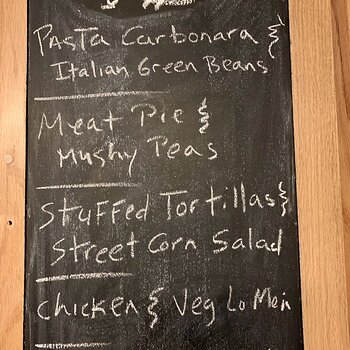 Pasta Carbonara &
Italian Green Beans
Meat Pie &
Mushy Peas
Stuffed Tortillas &
Street Corn Salad
Chicken & Veg Lo Mein